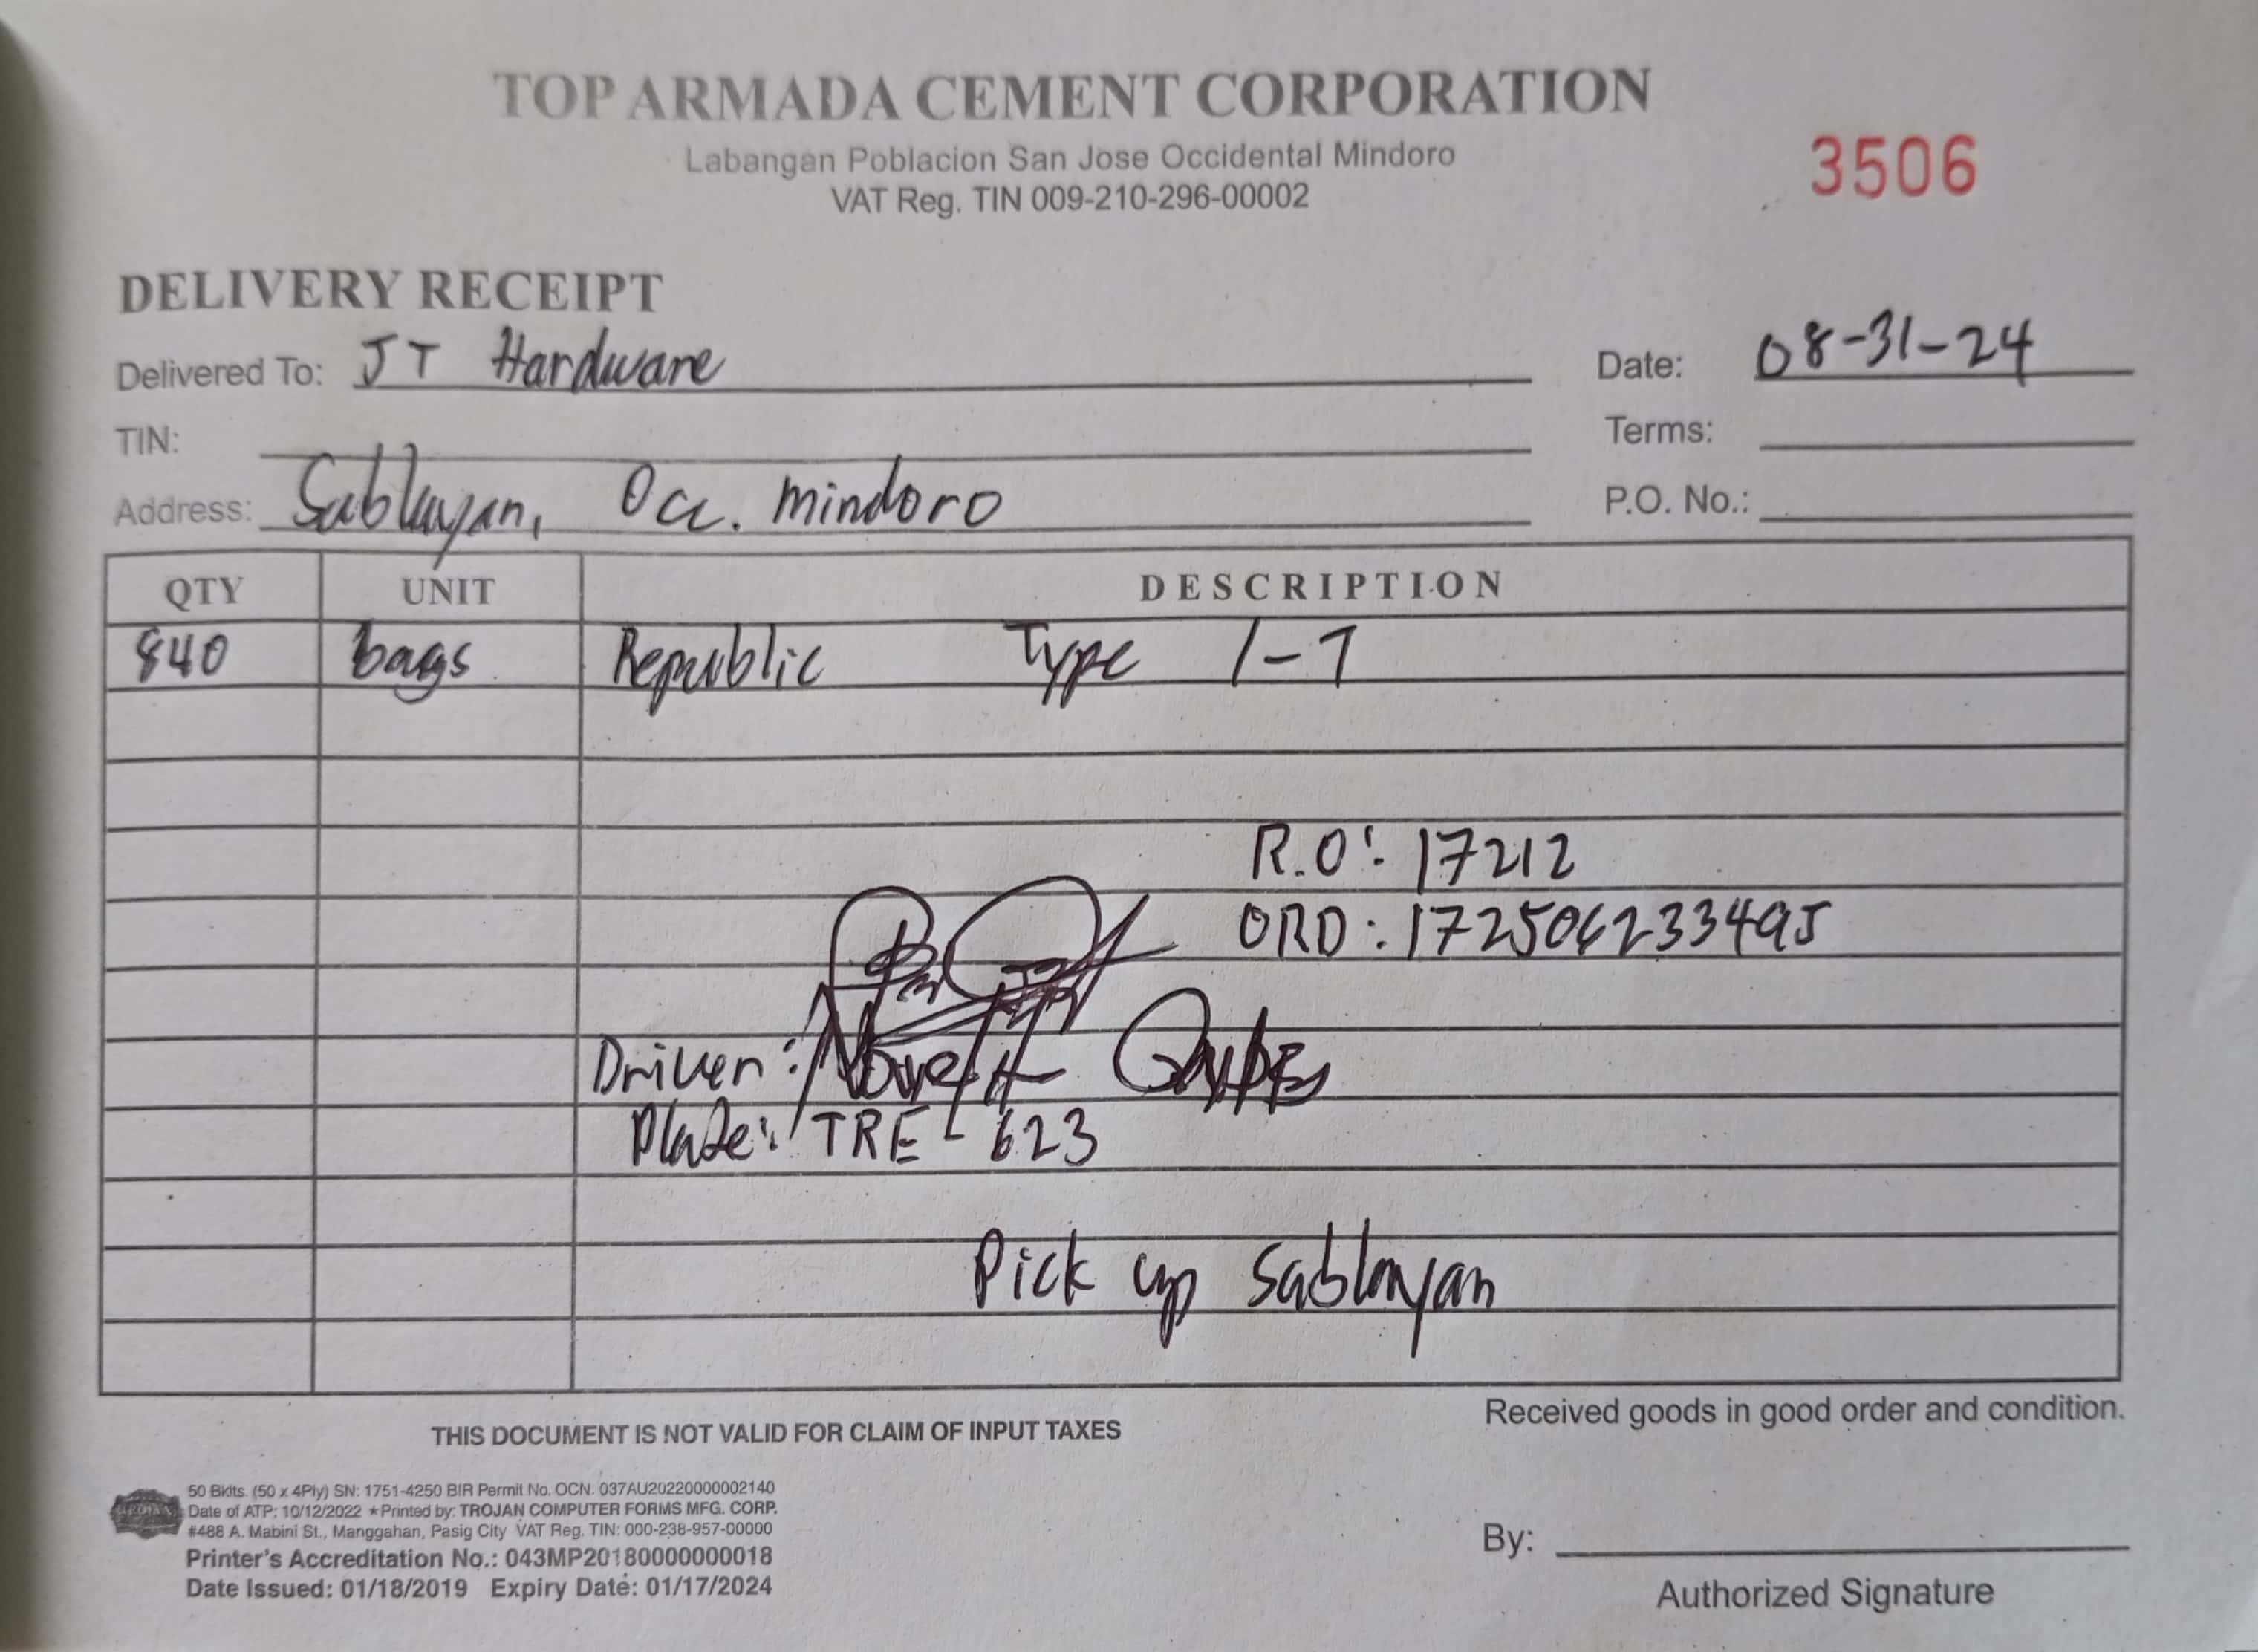 TOP ARMADA CEMENT CORPORATION
Labangan Poblacion San Jose Occidental Mindoro
VAT Reg. TIN 009-210-296-00002
3506
DELIVERY RECEIPT
Delivered To: JT Hardware
Date: 08-31-24
TIN:
Terms:
Address: Sablayan, Occ. Mindoro
P.O. No.:
QTY UNIT DESCRIPTION
840 bags Republic Type 1-T
R.O: 17212
ORD: 1725062333495
Driver:
Plate: TRE-623
Pick up Sablayan
THIS DOCUMENT IS NOT VALID FOR CLAIM OF INPUT TAXES
Received goods in good order and condition.
50 Bklts. (50 x 4Ply) SN: 1751-4250 BIR Permit No. OCN: 037AU20220000002140
Date of ATP: 10/12/2022 ★Printed by: TROJAN COMPUTER FORMS MFG. CORP.
#488 A. Mabini St., Manggahan, Pasig City VAT Reg. TIN: 000-238-957-00000
Printer's Accreditation No.: 043MP20180000000018
Date Issued: 01/18/2019 Expiry Date: 01/17/2024
By:
Authorized Signature